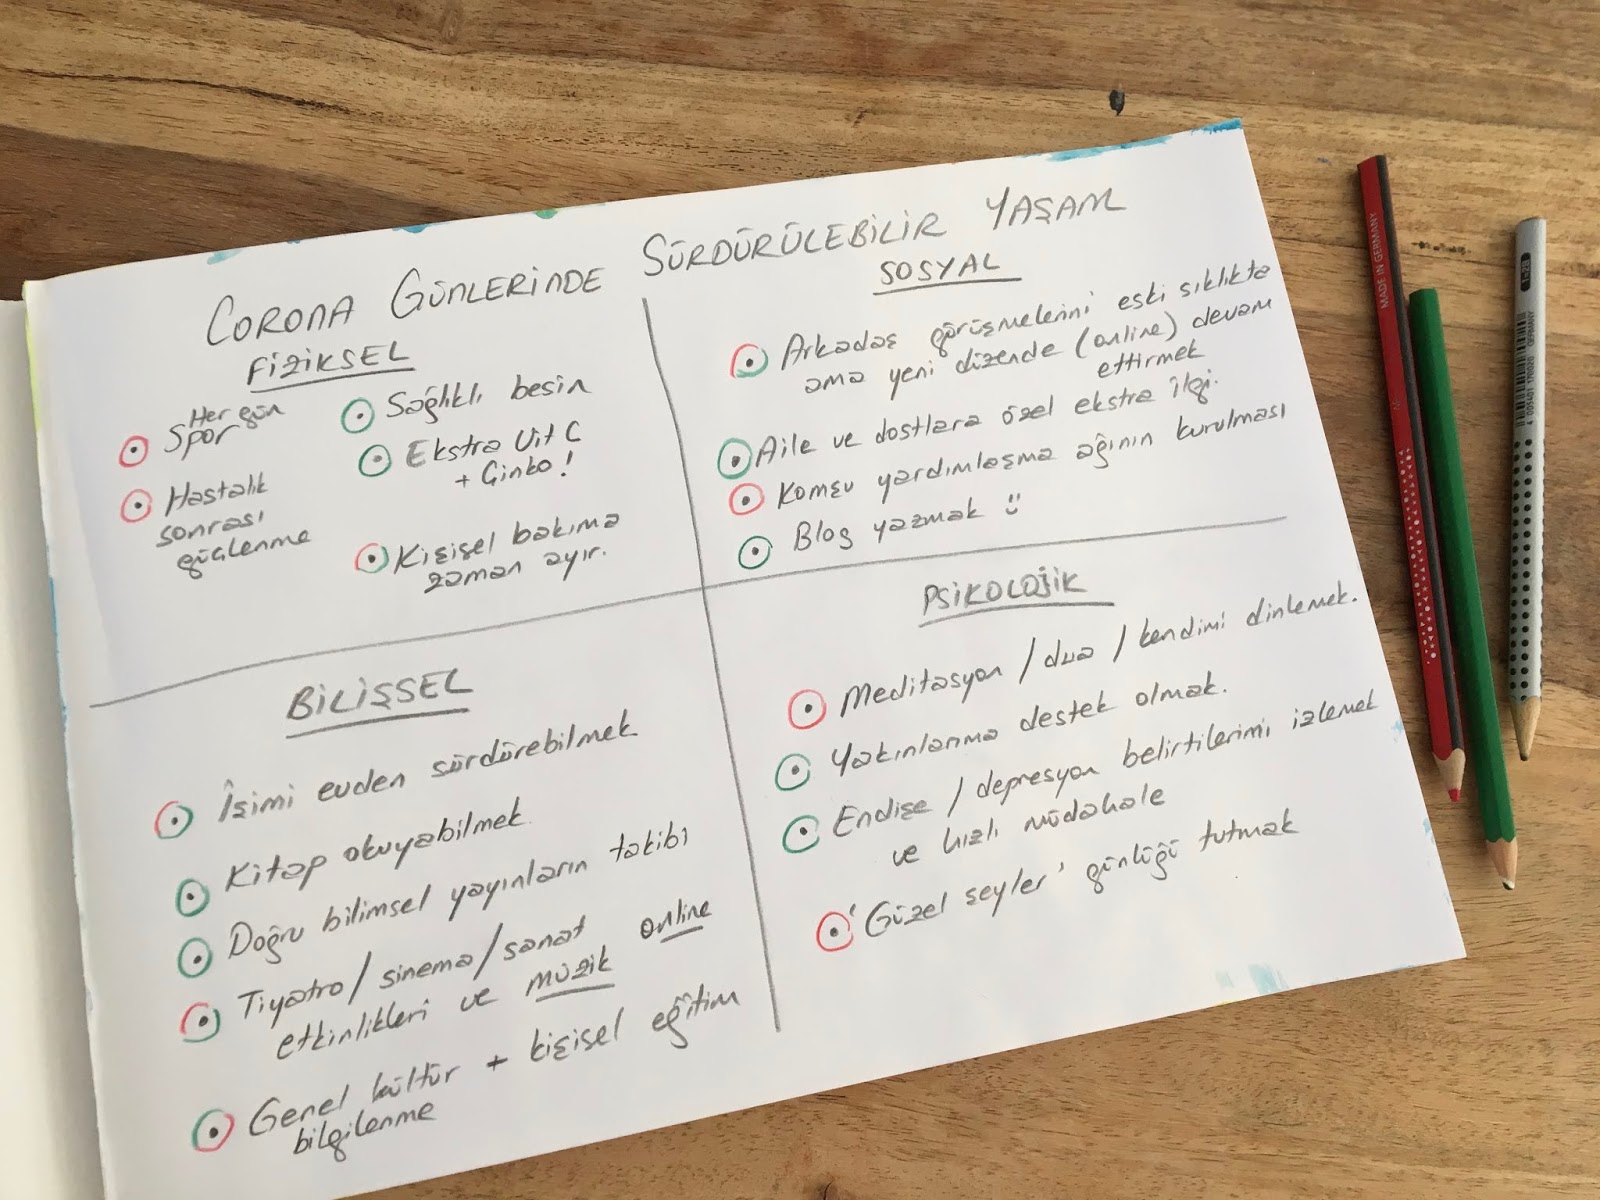 CORONA GÜNLERİNDE SÜRDÜRÜLEBİLİR YAŞAM
FİZİKSEL
Her gün
Spor
Hastalık
sonrası
güçlenme
Sağlıklı besin
Ekstra Vit C
+ Ginko!
Kişisel bakıma
zaman ayır.
SOSYAL
Arkadaş görüşmelerini eski sıklıkta
ama yeni düzende (online) devam
ettirmek
Aile ve dostlara özel ekstra ilgi.
Komşu yardımlaşma ağının kurulması
Blog yazmak
BİLİŞSEL
İşimi evden sürdürebilmek
Kitap okuyabilmek
Doğru bilimsel yayınların takibi
Tiyatro/sinema/sanat online
etkinlikleri ve müzik
Genel kültür + kişisel eğitim
bilgilenme
PSİKOLOJİK
Meditasyon / dua / kendimi dinlemek.
Yakınlarıma destek olmak.
Endişe / depresyon belirtilerimi izlemek
ve hızlı müdahale
'Güzel şeyler' günlüğü tutmak
MADE IN GERMANY
1=2B
4 005401 170020 GERMANY